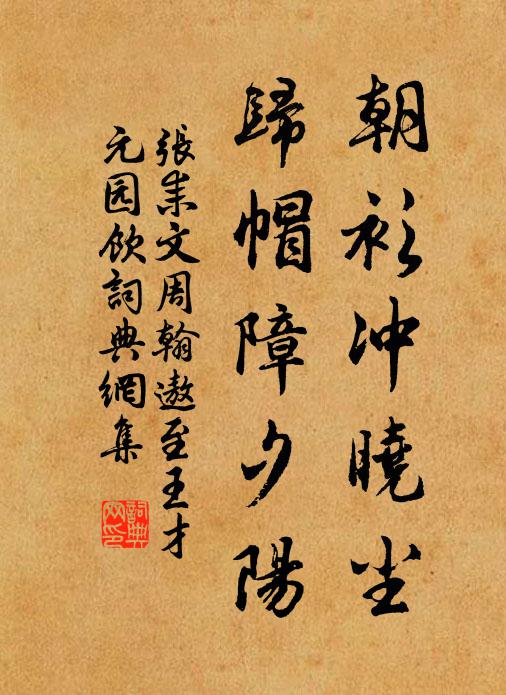 朝衫冲曉尘
歸帽障夕陽
張耒文周翰邀至王才
元园飲詞典網集
詞典
网印